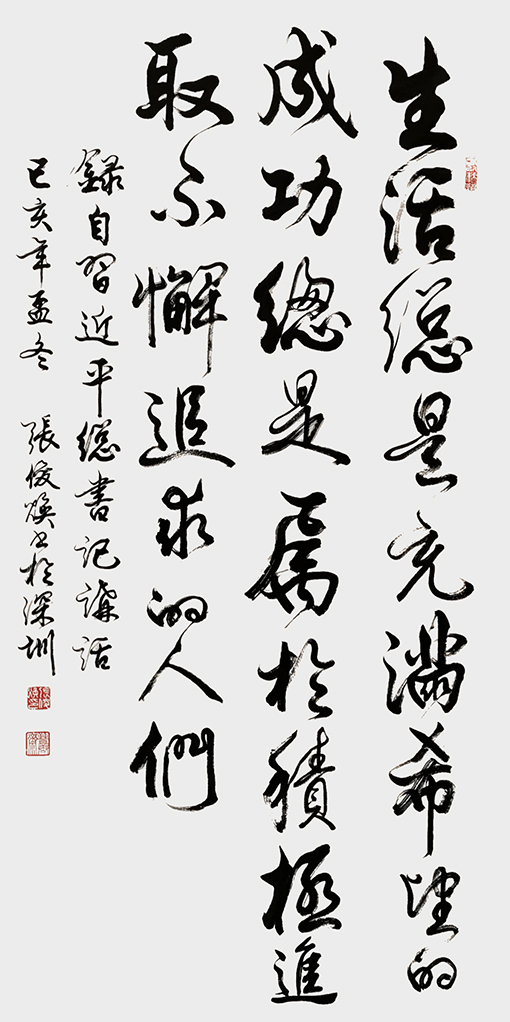 生活總是充滿希望的
成功總是屬於積極進
取不懈追求的人們
錄自習近平總書記講話
己亥年孟冬 張俊煥書於深圳